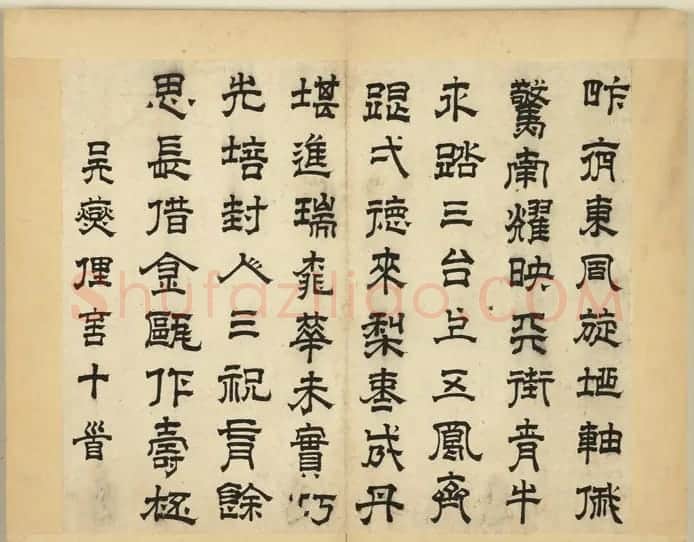 昨夜東周旋地軸俄
驚南耀映天街青牛
永踏三台上五鳳齊
跟弌德來棃棗成丹
堪進瑞桃華未實巧
先培封人三祝有餘
思長借金甌作壽桮
吳爕俚言十首
Shufaziliao.COM